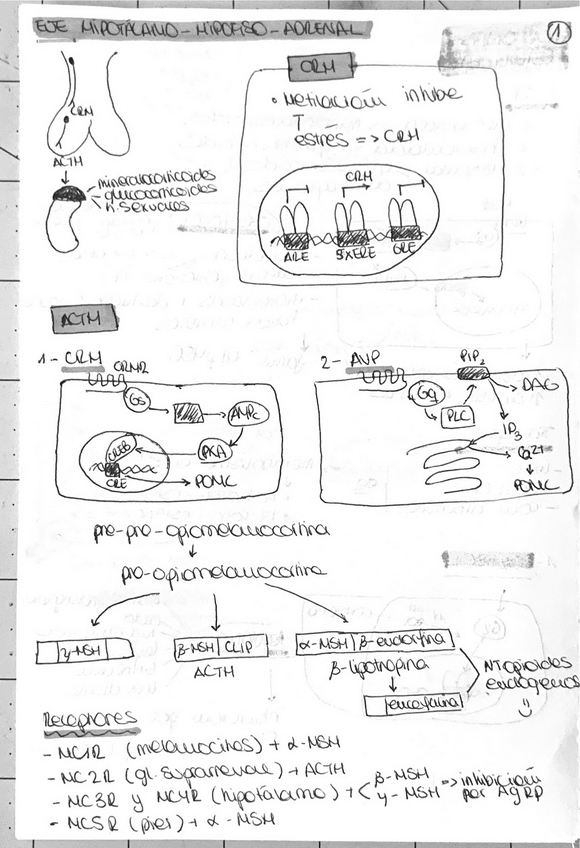 EJE HIPOTÁLAMO - HIPOFISO - ADRENAL
1
CRH
ACTH
mineralocorticoides
glucocorticoides
h. sexuales
CRH
• Metilación inhibe
estrés => CRH
CRH
AIRE
5XERE
GRE
ACTH
1 - CRH
CRHR
Gs
AMPc
PKA
CREB
CRE
POMC
2 - AVP
PIP2
Gq
PLC
DAG
IP3
Ca2+
POMC
pre-pro-opiomelanocortina
pro-opiomelanocortina
γ-MSH
β-MSH | CLIP
ACTH
α-MSH | β-endorfina
β-lipotropina
encefalina
NT opioides
endógenos
Receptores
- MC1R (melanocitos) + α-MSH
- MC2R (gl. suprarrenal) + ACTH
- MC3R y MC4R (hipotálamo) + < β-MSH γ-MSH => inhibición por AgRP
- MC5R (piel) + α-MSH